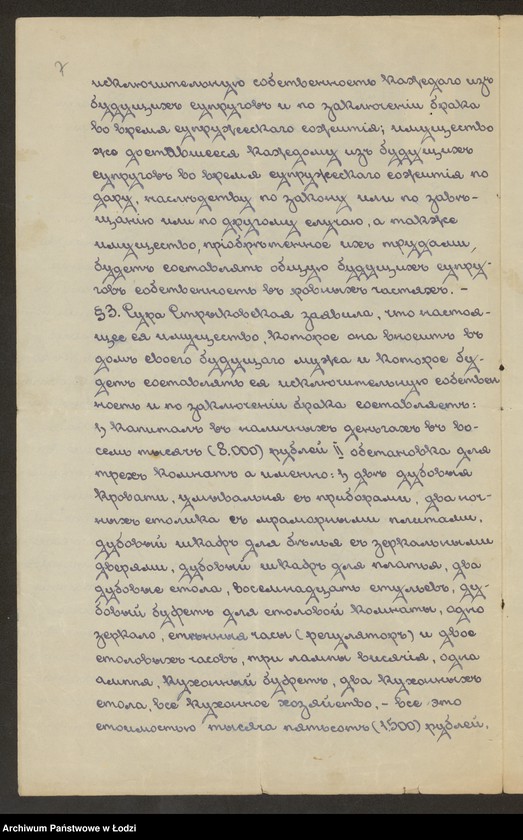 7
исключительную собственность каждаго изъ
будущихъ супруговъ и по заключенiи брака
во время супружескаго сожитiя; имущество
же доставшееся каждому изъ будущихъ
супруговъ во время супружескаго сожитiя по
дару, наслѣдству по закону или по завѣ-
щанiю или по другому случаю, а также
имущество, прiобрѣтенное ихъ трудами,
будетъ составлять общую будущихъ супру-
говъ собственность въ ровныхъ частяхъ. -
§3. Сура Стрыковская заявила, что настоя-
щее ея имущество, которое она вноситъ въ
домъ своего будущаго мужа и которое бу-
детъ составлять ея исключительную собствен
ность и по заключенiи брака составляетъ:
I, капиталъ въ наличныхъ деньгахъ въ во-
семь тысячъ (8.000) рублей II обстановка для
трехъ комнатъ а именно: 1, двѣ дубовыя
кровати, умывальня съ приборами, два ноч-
ныхъ столика съ мраморными плитами,
дубовый шкафъ для бѣлья съ зеркальными
дверями, дубовый шкафъ для платья, два
дубовые стола, восемнадцать стульевъ, ду-
бовый буфетъ для столовой комнаты, одно
зеркало, стѣнныя часы (регуляторъ) и двое
столовыхъ часовъ, три лампы висячiя, одна
лампа, кухонный буфетъ, два кухонныхъ
стола, все кухонное хозяйство, - все это
стоимостью тысяча пятьсотъ (1.500) рублей,
Archiwum Państwowe w Łodzi